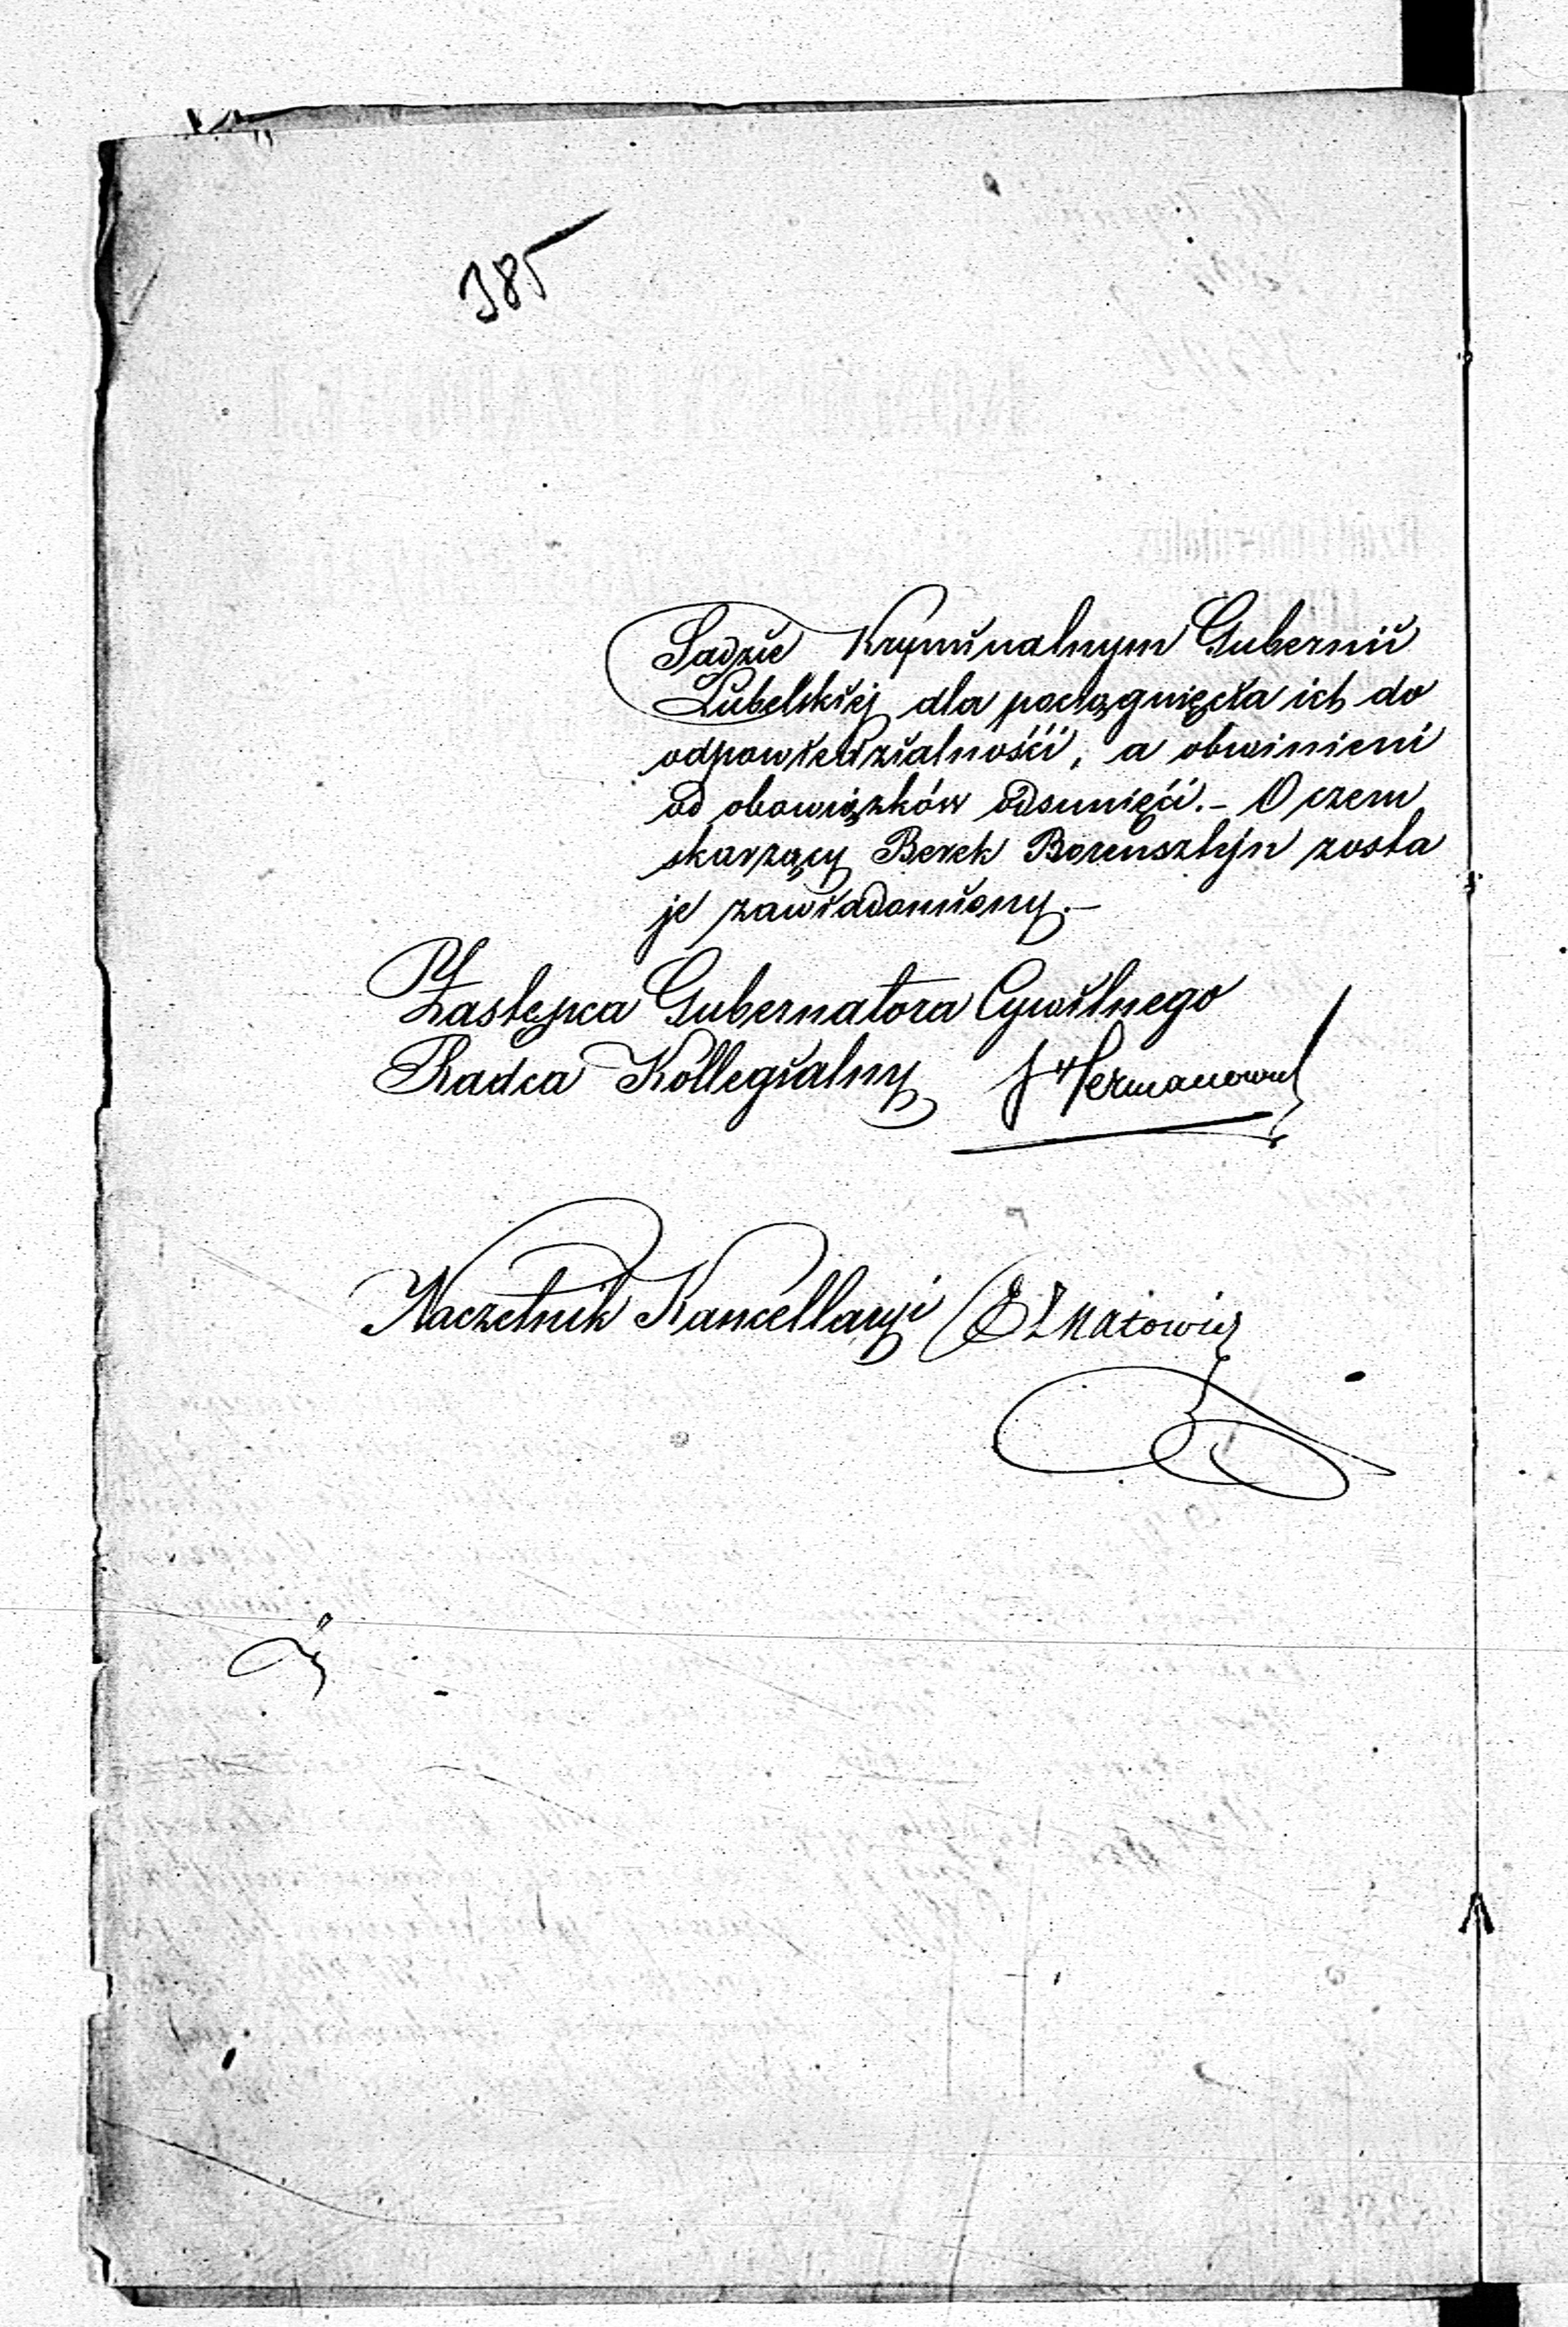 385
Sądzie Kryminalnym Gubernii
Lubelskiej dla pociągnięcia ich do
odpowiedzialności, a obwinieni
od obowiązków odsunięci. – O czem
skarżący Berek Borensztejn zosta
je zawiadomiony. –
Zastępca Gubernatora Cywilnego
Radca Kollegialny J Hermanowi
Naczelnik Kancellaryi